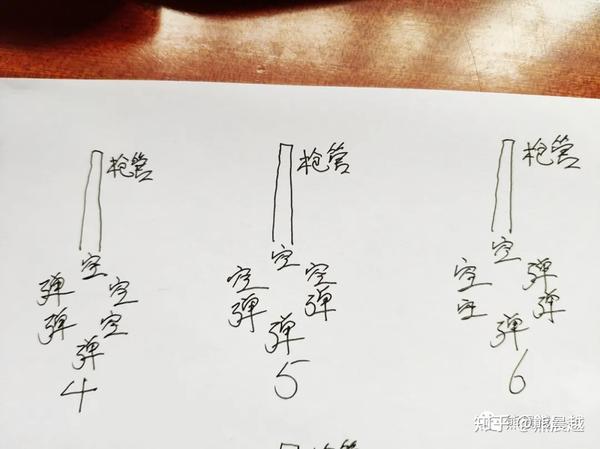 枪管
空
弹 空
弹 空
弹
4
枪管
空
空 空
弹 弹
弹
5
枪管
空
空 弹
空 弹
弹
6
知乎 @熊晨越